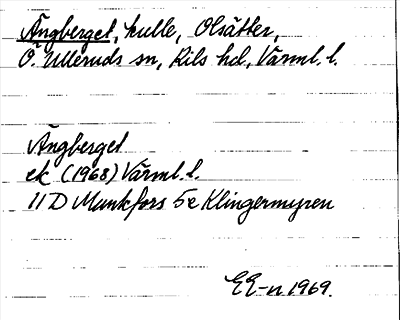 Ängberget, kulle, Olsätter,
Ö. Ulleruds sn, Kils hd, Värml. l.
Ängberget
ek (1968) Värml. l.
11 D Munkfors 5 e Klingermyren
EE-n 1969.